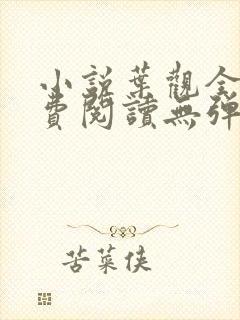 小說葉觀全
費閱讀無彈
苦菜俠